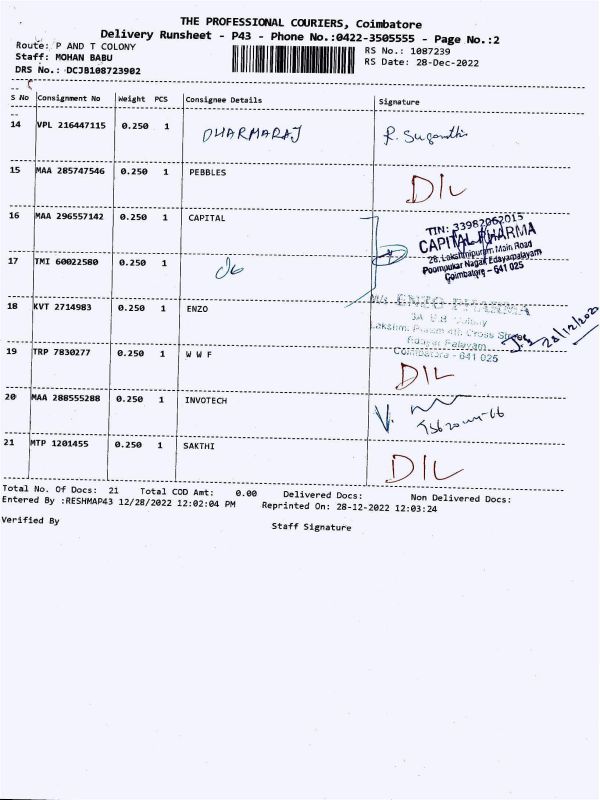 THE PROFESSIONAL COURIERS, Coimbatore
Delivery Runsheet - P43 - Phone No.:0422-3505555 - Page No.:2
Route: P AND T COLONY
RS No.: 1087239
Staff: MOHAN BABU
RS Date: 28-Dec-2022
DRS No.: DCJB108723902
S No Consignment No Weight PCS Consignee Details Signature
14 VPL 216447115 0.250 1 DHARMARAJ R. Suganthi
15 MAA 285747546 0.250 1 PEBBLES DIL
16 MAA 296557142 0.250 1 CAPITAL
TIN: 33982062015
CAPITAL PHARMA
28, Lakshmipuram Main Road
Poompukar Nagar, Edayarpalayam
Coimbatore - 641 025
17 TMI 60022580 0.250 1 do
18 KVT 2714983 0.250 1 ENZO
ENZO PHARMA
Lakshmi Puram 4th Cross Street
Coimbatore - 641 025
28/12/202
19 TRP 7830277 0.250 1 W W F DIL
20 MAA 288555288 0.250 1 INVOTECH V.
21 MTP 1201455 0.250 1 SAKTHI DIL
Total No. Of Docs: 21 Total COD Amt: 0.00 Delivered Docs: Non Delivered Docs:
Entered By :RESHMAP43 12/28/2022 12:02:04 PM Reprinted On: 28-12-2022 12:03:24
Verified By
Staff Signature